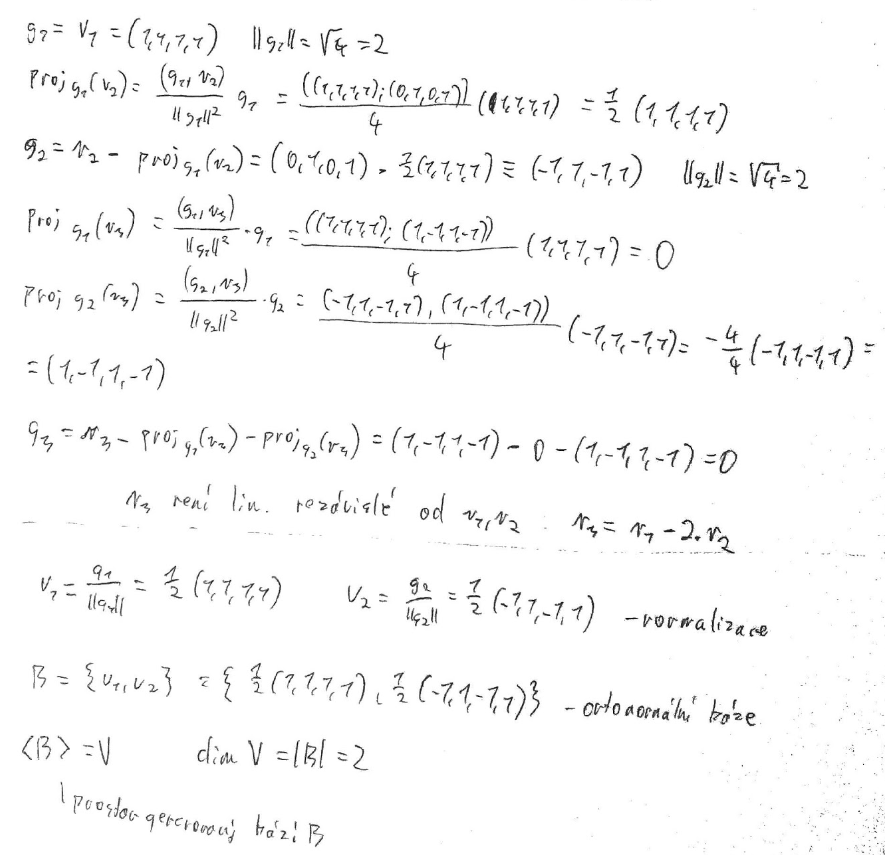 g₁ = v₁ = (1,1,1,1) ||g₁|| = √4 = 2
Proj g₁(v₂) = (g₁, v₂) / ||g₁||² g₁ = ((1,1,1,1); (0,1,0,1)) / 4 (1,1,1,1) = 1/2 (1,1,1,1)
g₂ = v₂ - proj g₁(v₂) = (0,1,0,1) - 1/2(1,1,1,1) ≡ (-1,1,-1,1) ||g₂|| = √4 = 2
Proj g₁(v₃) = (g₁, v₃) / ||g₁||² · g₁ = ((1,1,1,1); (1,-1,1,-1)) / 4 (1,1,1,1) = 0
Proj g₂(v₃) = (g₂, v₃) / ||g₂||² · g₂ = (-1,1,-1,1), (1,-1,1,-1)) / 4 (-1,1,-1,1) = -4/4 (-1,1,-1,1) =
= (1,-1,1,-1)
g₃ = v₃ - proj g₁(v₃) - proj g₂(v₃) = (1,-1,1,-1) - 0 - (1,-1,1,-1) = 0
v₃ není lin. nezávislé od v₁, v₂ : v₃ = v₁ - 2·v₂
u₁ = g₁ / ||g₁|| = 1/2 (1,1,1,1) u₂ = g₂ / ||g₂|| = 1/2 (-1,1,-1,1) - normalizace
B = {u₁, u₂} = {1/2 (1,1,1,1), 1/2 (-1,1,-1,1)} - ortonormální báze
⟨B⟩ = V dim V = |B| = 2
prostor generovaný bází B